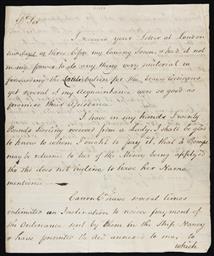 Dr Sir
I received your Letter at London
two or three days my coming down, & had it not
in my power to do any thing very material in
forwarding the Contribution for the Jersey
yet several of my Acquaintance were so good as
promise their Assistance.
I have in my hands Twenty
Pounds Sterling received from a Lady. I shall be glad
to know to whom I ought to pay it, that a
may be returned to her of the Money being apply'd
tho she does not incline to have her Name
mentioned
have several times
an Inclination to receive payment of
the Ordinance sent by them in the Ship Nancy
& have promised the accounts to me, to
which